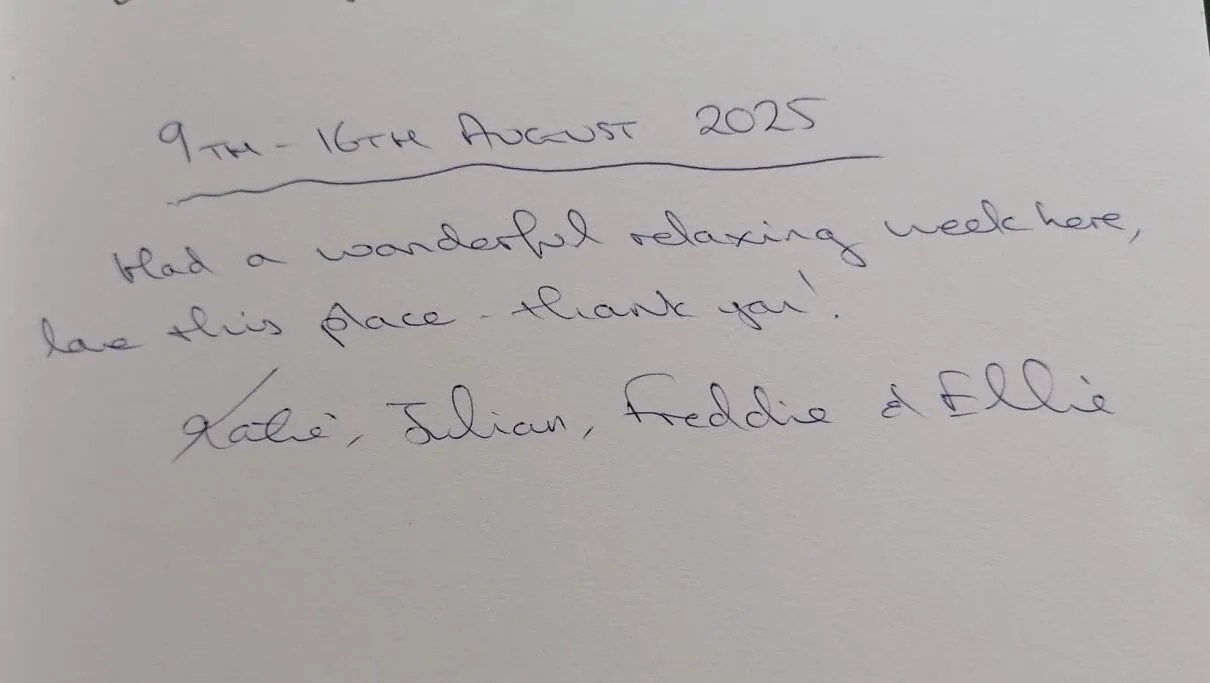 9TH - 16TH AUGUST 2025
Had a wonderful relaxing week here,
love this place - thank you!
Katie, Julian, Freddie & Ellie